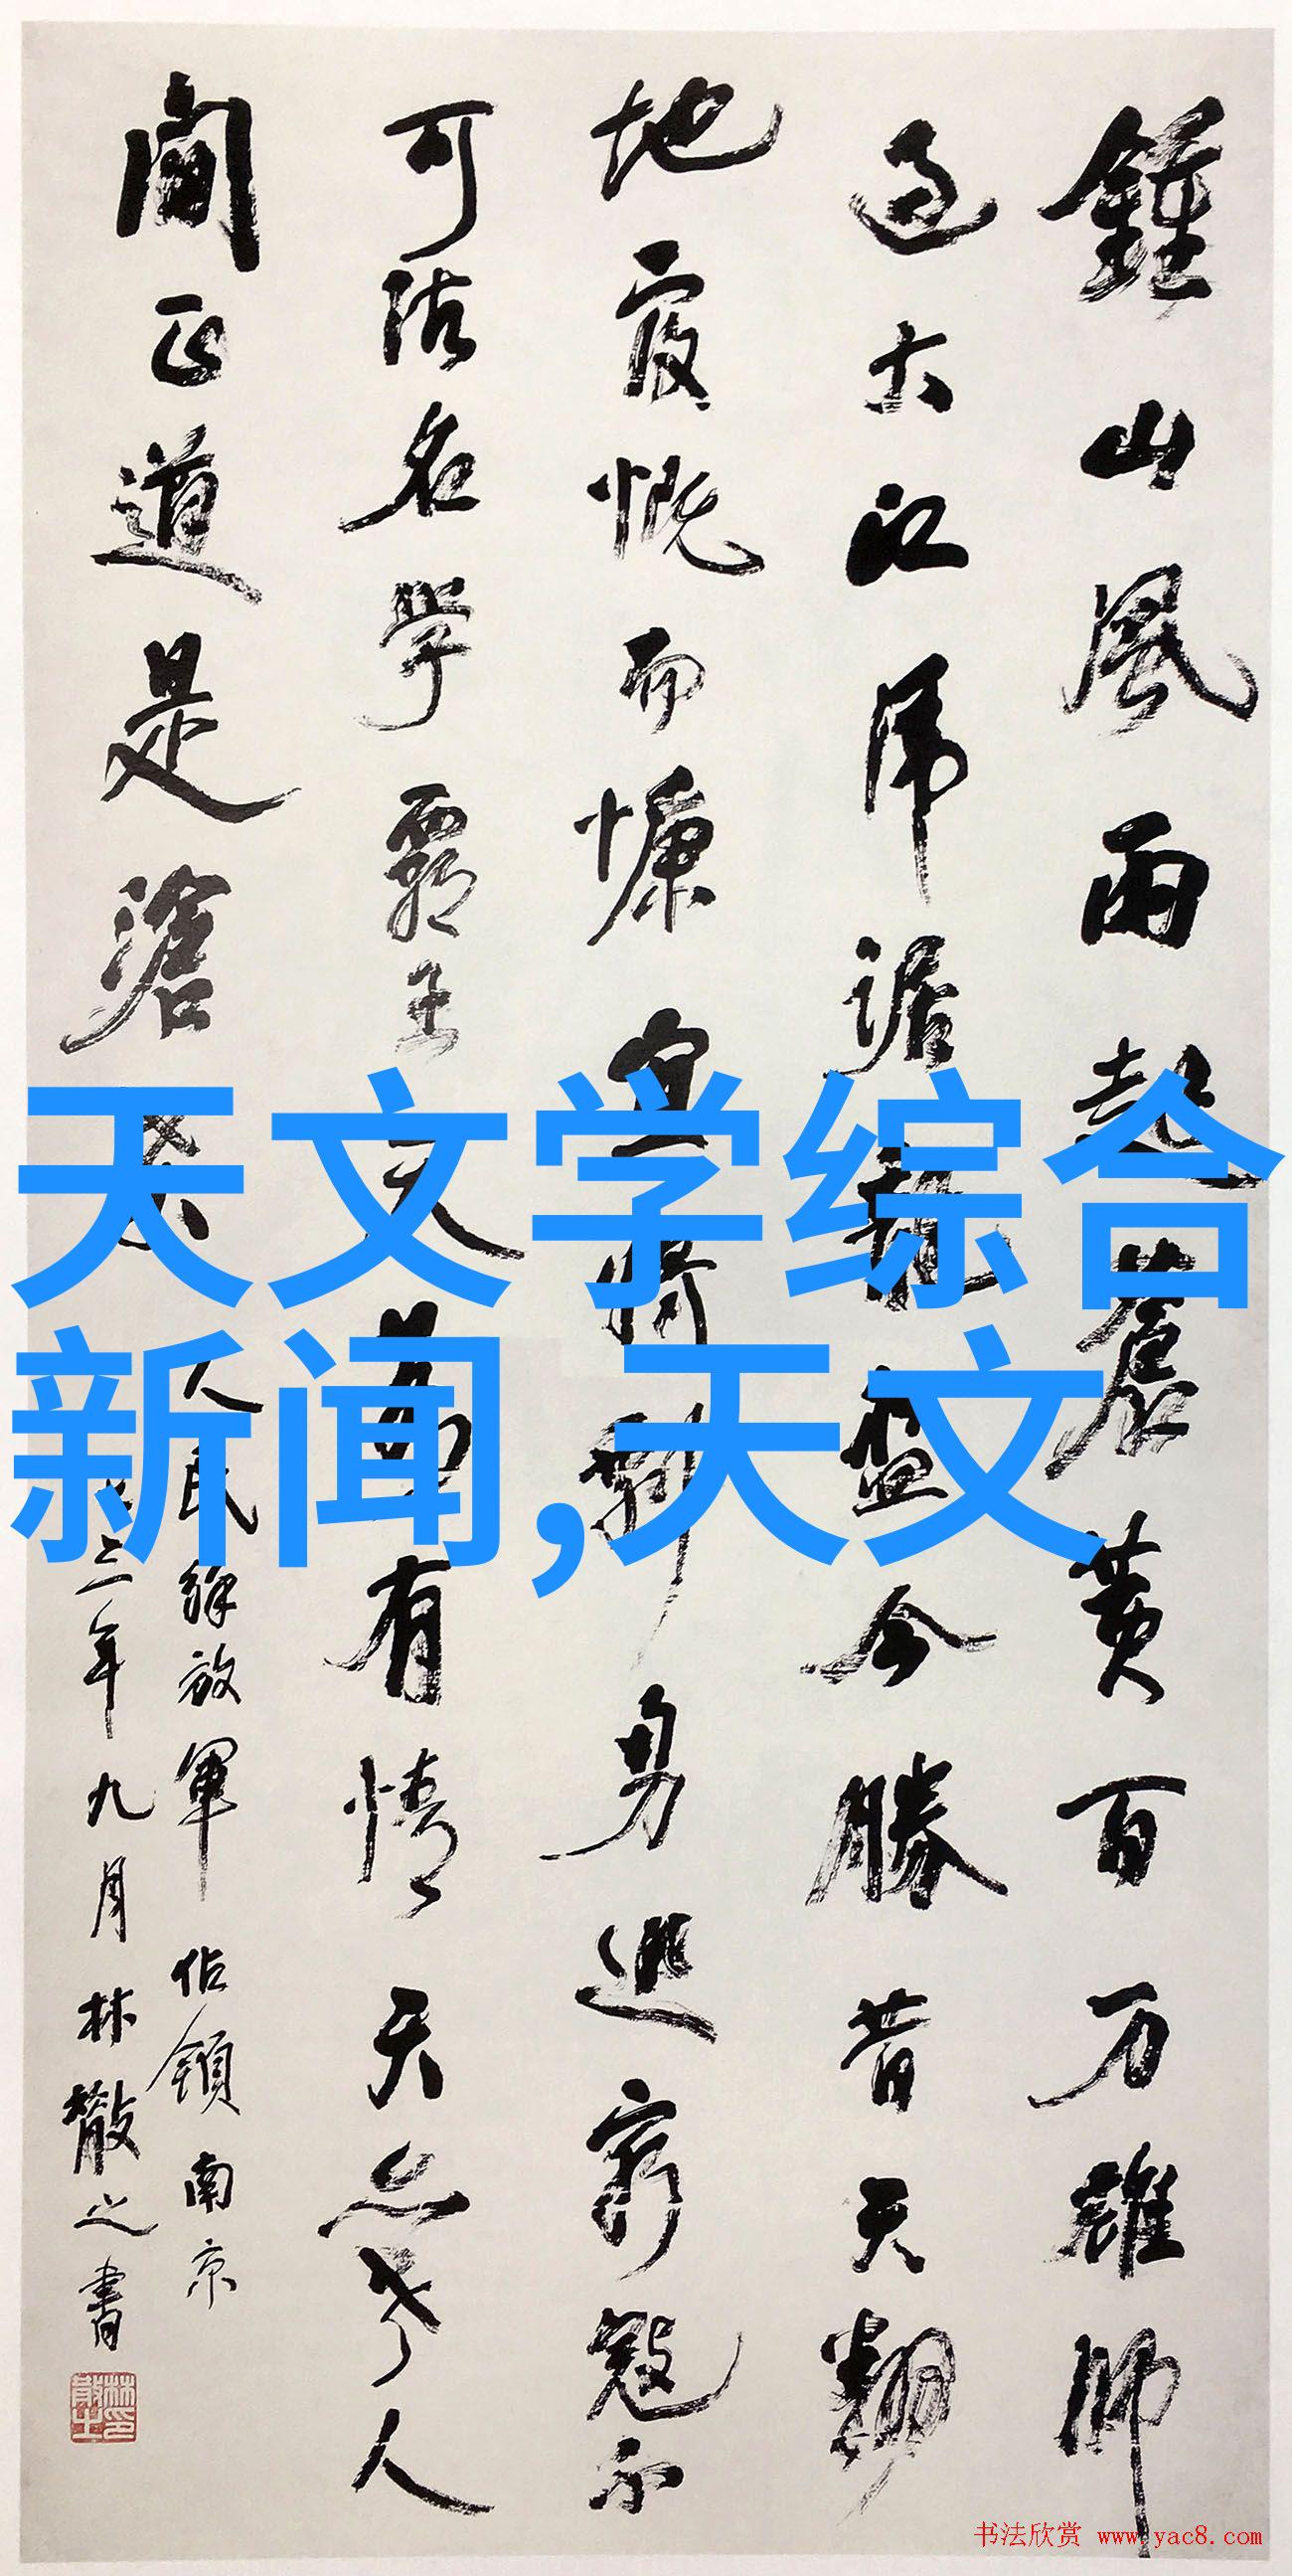 鍾山風雨起蒼黄百万雄師
过大江虎踞龍盤今勝昔天翻
地覆慨而慷宜将剩勇追窮寇不
可沽名學霸王天若有情天亦老人
間正道是滄桑
人民解放軍佔領南京
三年九月林散之書
天文学综合
新闻,天文
书法欣赏 www.yac8.com